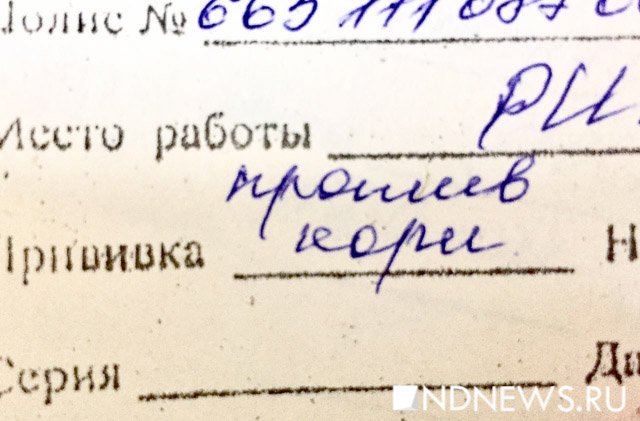 Полис № 665 111 087
Место работы РИ
против
Прививка кори Н
Серия Да
NDNEWS.RU